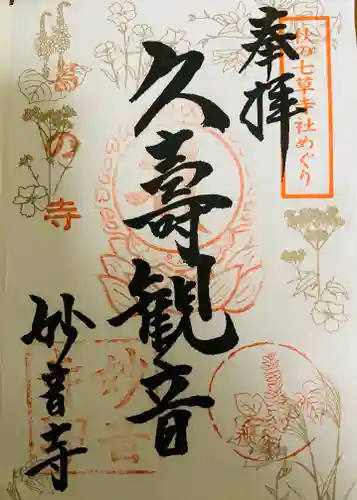 秋の七草寺社めぐり
奉拝
久壽観音
葛の寺
妙音寺